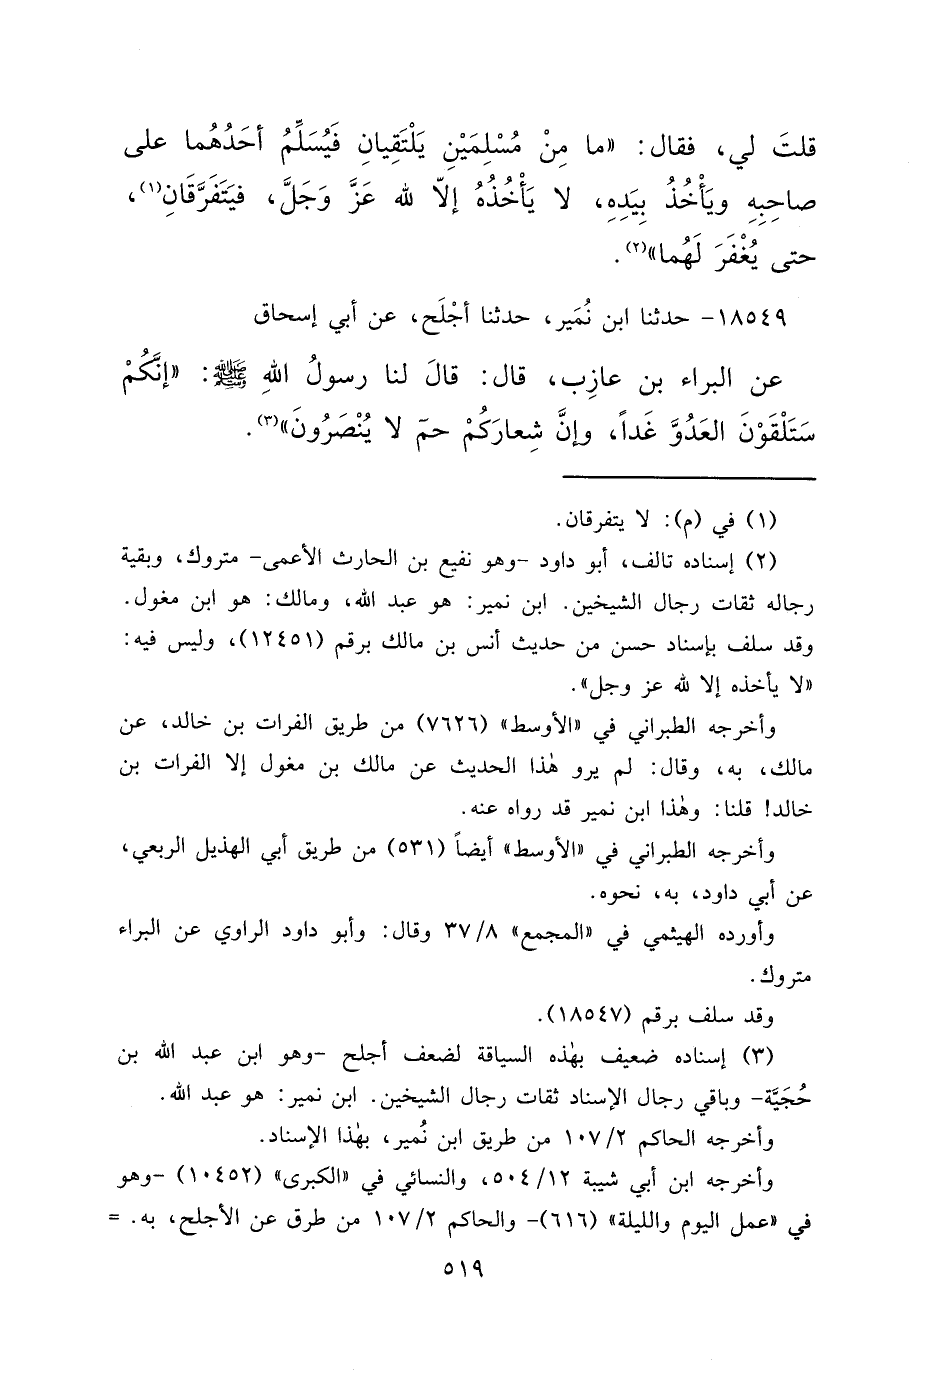 قلتَ لي، فقال: «ما مِنْ مُسْلِمَيْنِ يَلْتَقِيانِ فَيُسَلِّمُ أحَدُهُما على
صاحِبِهِ ويَأْخُذُ بِيَدِهِ، لا يَأْخُذُهُ إلاّ لله عَزَّ وَجَلَّ، فيَتَفَرَّقَانِ(١)،
حتى يُغْفَرَ لَهُما»(٢).
١٨٥٤٩- حدثنا ابن نُمَير، حدثنا أجْلَح، عن أبي إسحاق
عن البراء بن عازِب، قال: قالَ لنا رسولُ اللهِ ﷺ: «إنَّكُمْ
سَتَلْقَوْنَ العَدُوَّ غَداً، وإنَّ شِعارَكُمْ حمۤ لا يُنْصَرُونَ»(٣).
(١) في (م): لا يتفرقان.
(٢) إسناده تالف، أبو داود -وهو نفيع بن الحارث الأعمى- متروك، وبقية
رجاله ثقات رجال الشيخين. ابن نمير: هو عبد الله، ومالك: هو ابن مغول.
وقد سلف بإسناد حسن من حديث أنس بن مالك برقم (١٢٤٥١)، وليس فيه:
«لا يأخذه إلا لله عز وجل».
وأخرجه الطبراني في «الأوسط» (٧٦٢٦) من طريق الفرات بن خالد، عن
مالك، به، وقال: لم يرو هٰذا الحديث عن مالك بن مغول إلا الفرات بن
خالد! قلنا: وهٰذا ابن نمير قد رواه عنه.
وأخرجه الطبراني في «الأوسط» أيضاً (٥٣١) من طريق أبي الهذيل الربعي،
عن أبي داود، به، نحوه.
وأورده الهيثمي في «المجمع» ٣٧/٨ وقال: وأبو داود الراوي عن البراء
متروك.
وقد سلف برقم (١٨٥٤٧).
(٣) إسناده ضعيف بهٰذه السياقة لضعف أجلح -وهو ابن عبد الله بن
حُجَيَّة- وباقي رجال الإسناد ثقات رجال الشيخين. ابن نمير: هو عبد الله.
وأخرجه الحاكم ١٠٧/٢ من طريق ابن نُمير، بهٰذا الإسناد.
وأخرجه ابن أبي شيبة ٥٠٤/١٢، والنسائي في «الكبرى» (١٠٤٥٢) -وهو
في «عمل اليوم والليلة» (٦١٦)- والحاكم ١٠٧/٢ من طرق عن الأجلح، به. =
٥١٩